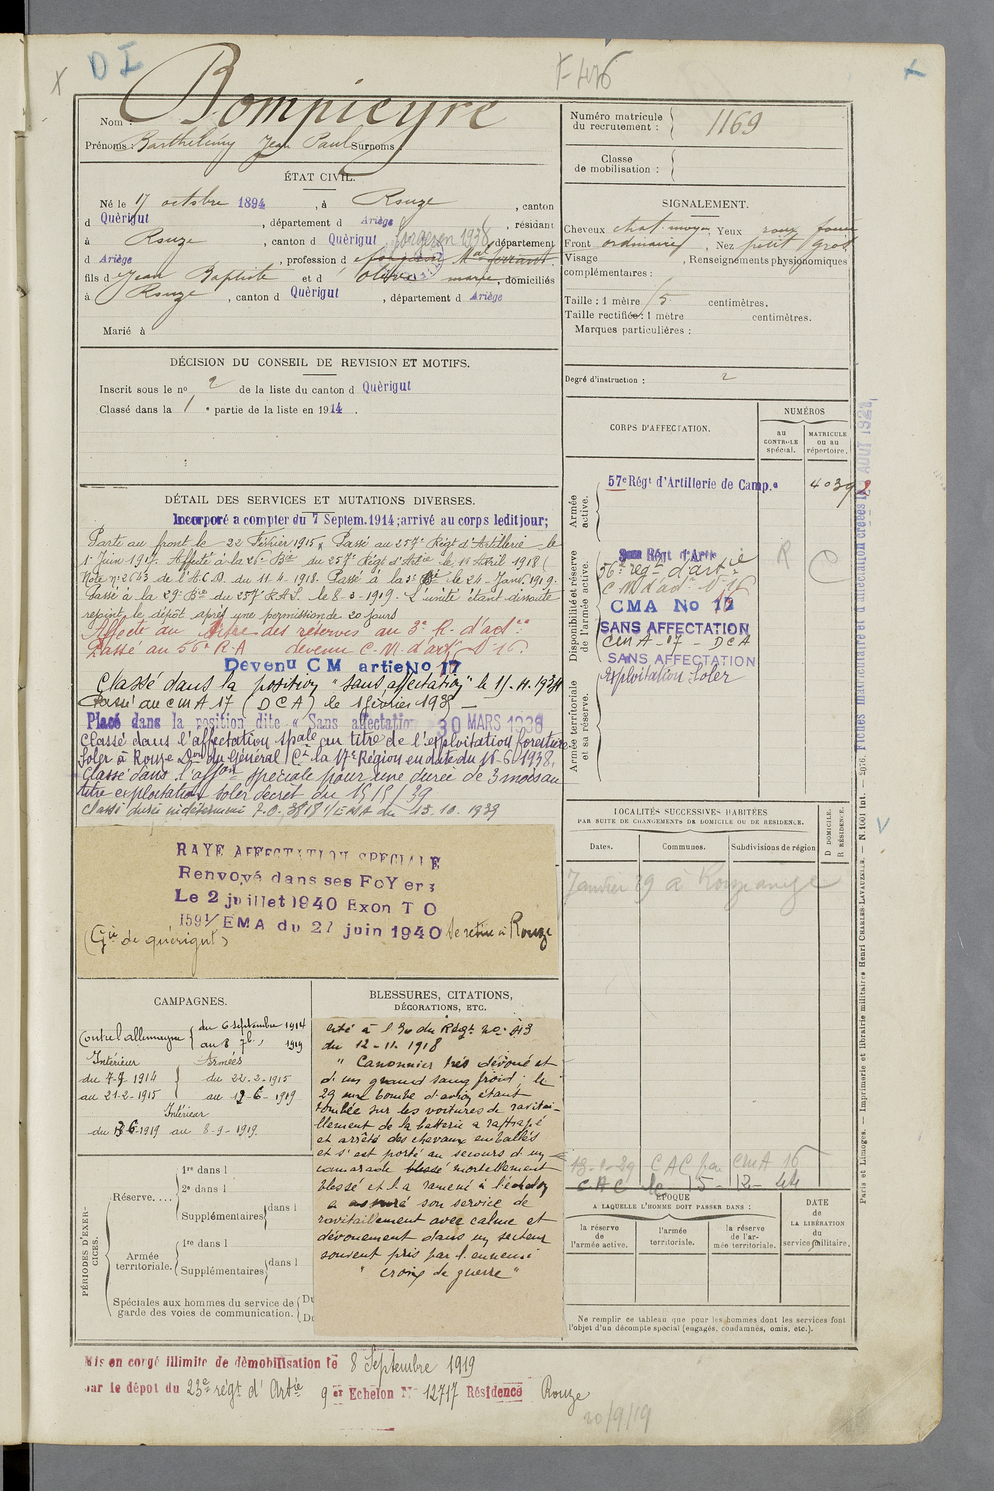 D I
F 446
Nom : Bompieyre
Prénoms : Barthélémy Jean Paul Surnoms :
Numéro matricule du recrutement : 1169
Classe de mobilisation :
ÉTAT CIVIL.
Né le 17 octobre 1894, à Rouze, canton
d Quèrigut, département d Ariège, résidant
à Rouze, canton d Quèrigut, département
forgeron 1938
d Ariège, profession d
fils d Jean Baptiste et d Olive marie, domiciliés
à Rouze, canton d Quèrigut, département d Ariège
Marié à
SIGNALEMENT.
Cheveux chat moyen Yeux roux foncé
Front ordinaire, Nez petit gros
Visage , Renseignements physionomiques
complémentaires :
Taille : 1 mètre 5 centimètres.
Taille rectifiée : 1 mètre centimètres.
Marques particulières :
Degré d'instruction : 2
DÉCISION DU CONSEIL DE REVISION ET MOTIFS.
Inscrit sous le no 2 de la liste du canton d Quèrigut
Classé dans la 1 e partie de la liste en 1914.
DÉTAIL DES SERVICES ET MUTATIONS DIVERSES.
Incorporé a compter du 7 Septem. 1914; arrivé au corps ledit jour;
Parti au front le 22 Février 1915. Passé au 257e Régt d'Artillerie le
1er Juin 1917. Affecté à la 26e Bie du 257e Régt d'Artie le 11 Avril 1918 (
Note no 2643 de l'A.C.D. du 11.4.1918. Passé à la 2e Bie le 24 Janv. 1919.
Passé à la 29e Bie du 257e R.A.L. le 8-8-1919. L'unité étant dissoute
rejoint le dépôt après une permission de 20 jours
Affecté au titre des réserves au 3e R. d'art.ie
Passé au 56e R.A devenu C.M. d'art. no 16.
Devenu CM artie No 17
Classé dans la position "sans affectation" le 15.11.1934
Passé au CMA 17 (DCA) le 1 février 1938
Placé dans la position dite « Sans affectation 30 MARS 1938
Classé dans l'affectation spale au titre de l'exploitation forestière
Soler à Rouze Don du Général Ct la 17e Région en date du 15-6-1938.
Classé dans l'affon spéciale pour une durée de 3 mois au
titre exploitation Soler decret du 15/9/39
Classé durée indéterminé J.O. 3818 1/EMA du 13.10.1939
RAYE AFFECTATION SPECIALE
Renvoyé dans ses FoYers
Le 2 juillet 1940 Exon T O
1591/EMA du 27 juin 1940 se retire à Rouze
(Gie de quérigut)
CORPS D'AFFECTATION.
NUMÉROS
au CONTROLE spécial.
MATRICULE ou au répertoire.
Armée active.
57e Régt d'Artillerie de Camp.e 40392
Disponibilité et réserve de l'armée active.
56e reg. d'artie
C M d'art no 16
CMA No 17
SANS AFFECTATION
CMA - 17 - DCA
SANS AFFECTATION
Exploitation Soler
R
Armée territoriale et sa réserve.
LOCALITÉS SUCCESSIVES HABITÉES
PAR SUITE DE CHANGEMENTS DE DOMICILE OU DE RÉSIDENCE.
Dates. Communes. Subdivisions de région
D DOMICILE. R RÉSIDENCE.
Janvier 29 à Rouze ariège
CAC par CMA 16
CAC le 15-12-
CAMPAGNES.
Contre l'allemagne du 6 septembre 1914
au 8 7bre 1919
Intérieur Armées
du 7-9 1914 du 22-2-1915
au 21-2-1915 au 12-6-1919
Intérieur
du 13-6-1919 au 8-9-1919
BLESSURES, CITATIONS, DÉCORATIONS, ETC.
Cité à l'O. du Régt no 213
du 12-11-1918
" Canonnier très dévoué et
d'un grand sang froid; le
29 une bombe d'avion étant
tombée sur les voitures de ravitai-
llement de la batterie a rattrapé
et arrêté des chevaux emballés
et s'est porté au secours d'un
camarade blessé mortellement
blessé et l'a ramené à l'échelon
a assuré son service de
ravitaillement avec calme et
dévouement dans un secteur
souvent pris par l'ennemi
" croix de guerre "
PÉRIODES D'EXERCICES.
Réserve.... 1re dans l
2e dans l
Supplémentaires dans l
Armée territoriale. 1re dans l
Supplémentaires dans l
Spéciales aux hommes du service de garde des voies de communication.
ÉPOQUE
A LAQUELLE L'HOMME DOIT PASSER DANS :
la réserve de l'armée active.
l'armée territoriale.
la réserve de l'armée territoriale.
DATE de LA LIBÉRATION du service militaire.
Ne remplir ce tableau que pour les hommes dont les services font
l'objet d'un décompte spécial (engagés, condamnés, omis, etc.).
Mis en congé illimité de démobilisation le 8 Septembre 1919
par le dépot du 23e régt d'Artie 9er Echelon No 12717 Résidence Rouze
20/9/19
Paris et Limoges. — Imprimerie et librairie militaires Henri CHARLES-LAVAUZELLE. — N. 1001 Int. — 2076. Fiches matriculaire et d'affectation créées le AOUT 1921